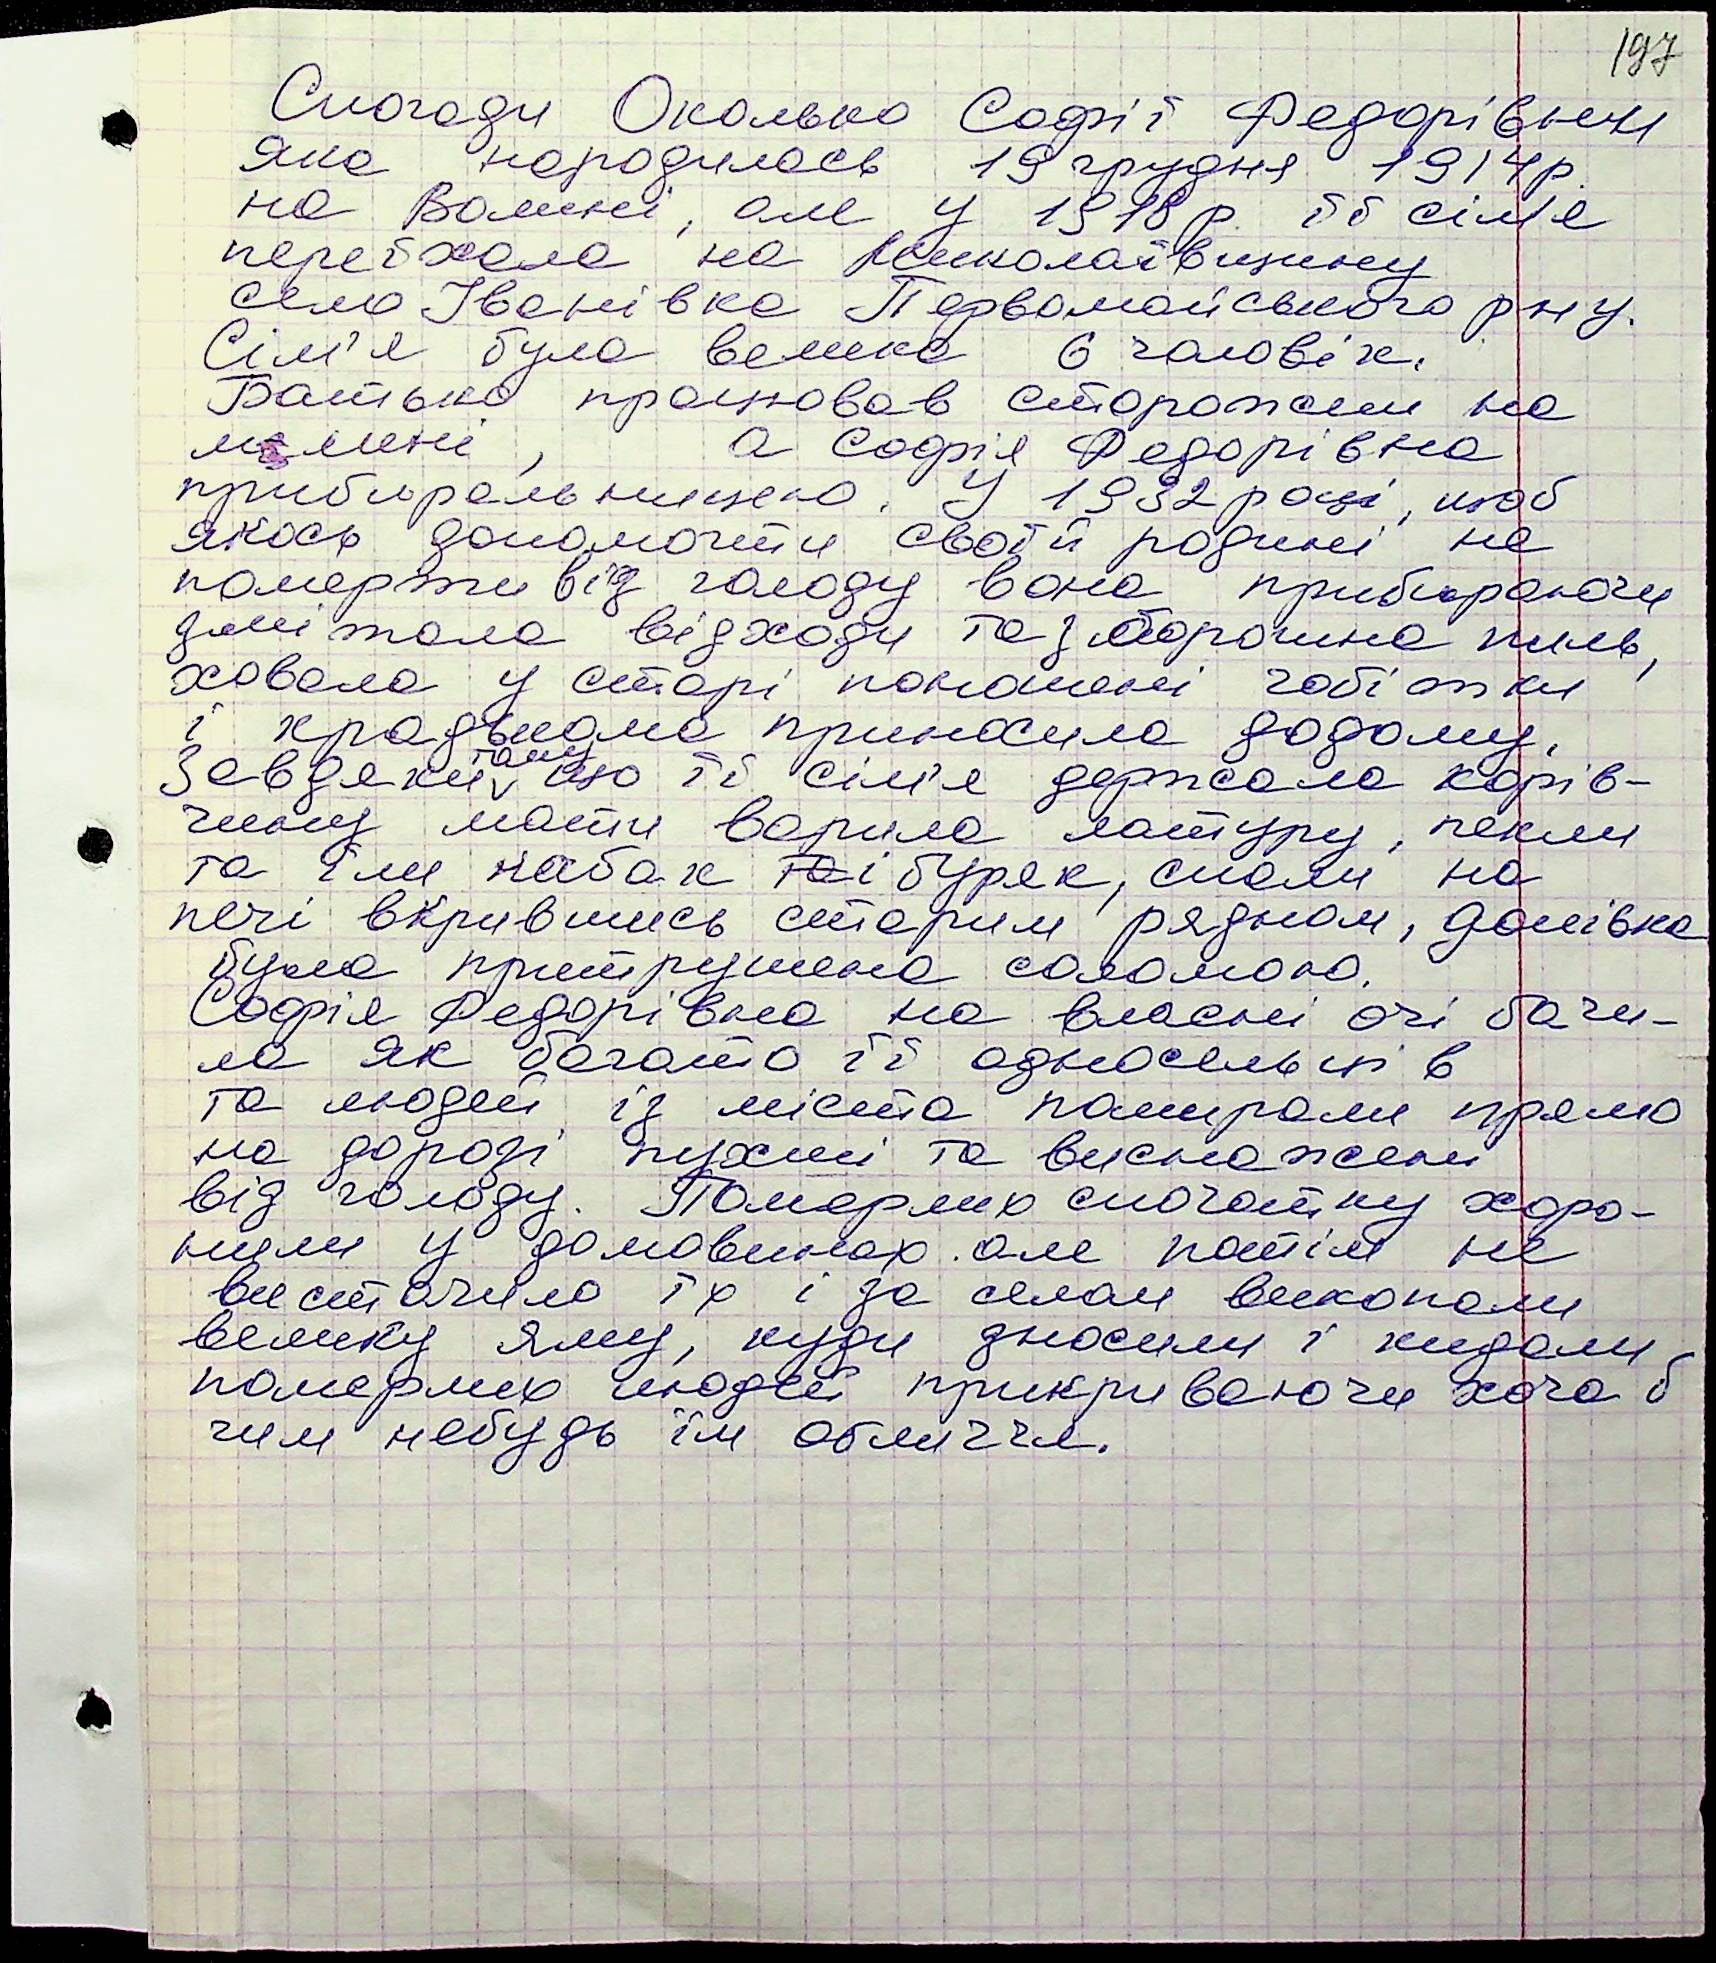 197
Спогади Околько Софії Федорівни
яка народилась 19 грудня 1914 р.
на Волині, але у 1918 р. її сім'я
переїхала на Миколаївщину
село Іванівка Первомайського рну.
Сім'я була велика 6 чоловік.
Батько працював сторожем на
млині, а Софія Федорівна
прибиральницею. У 1932 році, щоб
якось допомогти своїй родині не
померти від голоду вона прибираючи
змітала відходи та з борошна пиль,
ховала у старі поношені чобітки
і крадькома приносила додому.
Завдяки тому що її сім'я держала корів-
чину мати варила затуру, пекли
та їли кабак та і буряк, спали на
печі вкрившись старим рядном, домівка
була притрушена соломою.
Софія Федорівна на власні очі бачи-
ла як багато її односельців
та людей із міста помирали прямо
на дорозі пухлі та виснажени
від голоду. Померлих спочатку хоро-
нили у домовинах але потім не
вистачило їх і за селом викопали
велику яму, куди зносили і кидали
померлих людей прикриваючи хоча б
чим небудь їм обличчя.